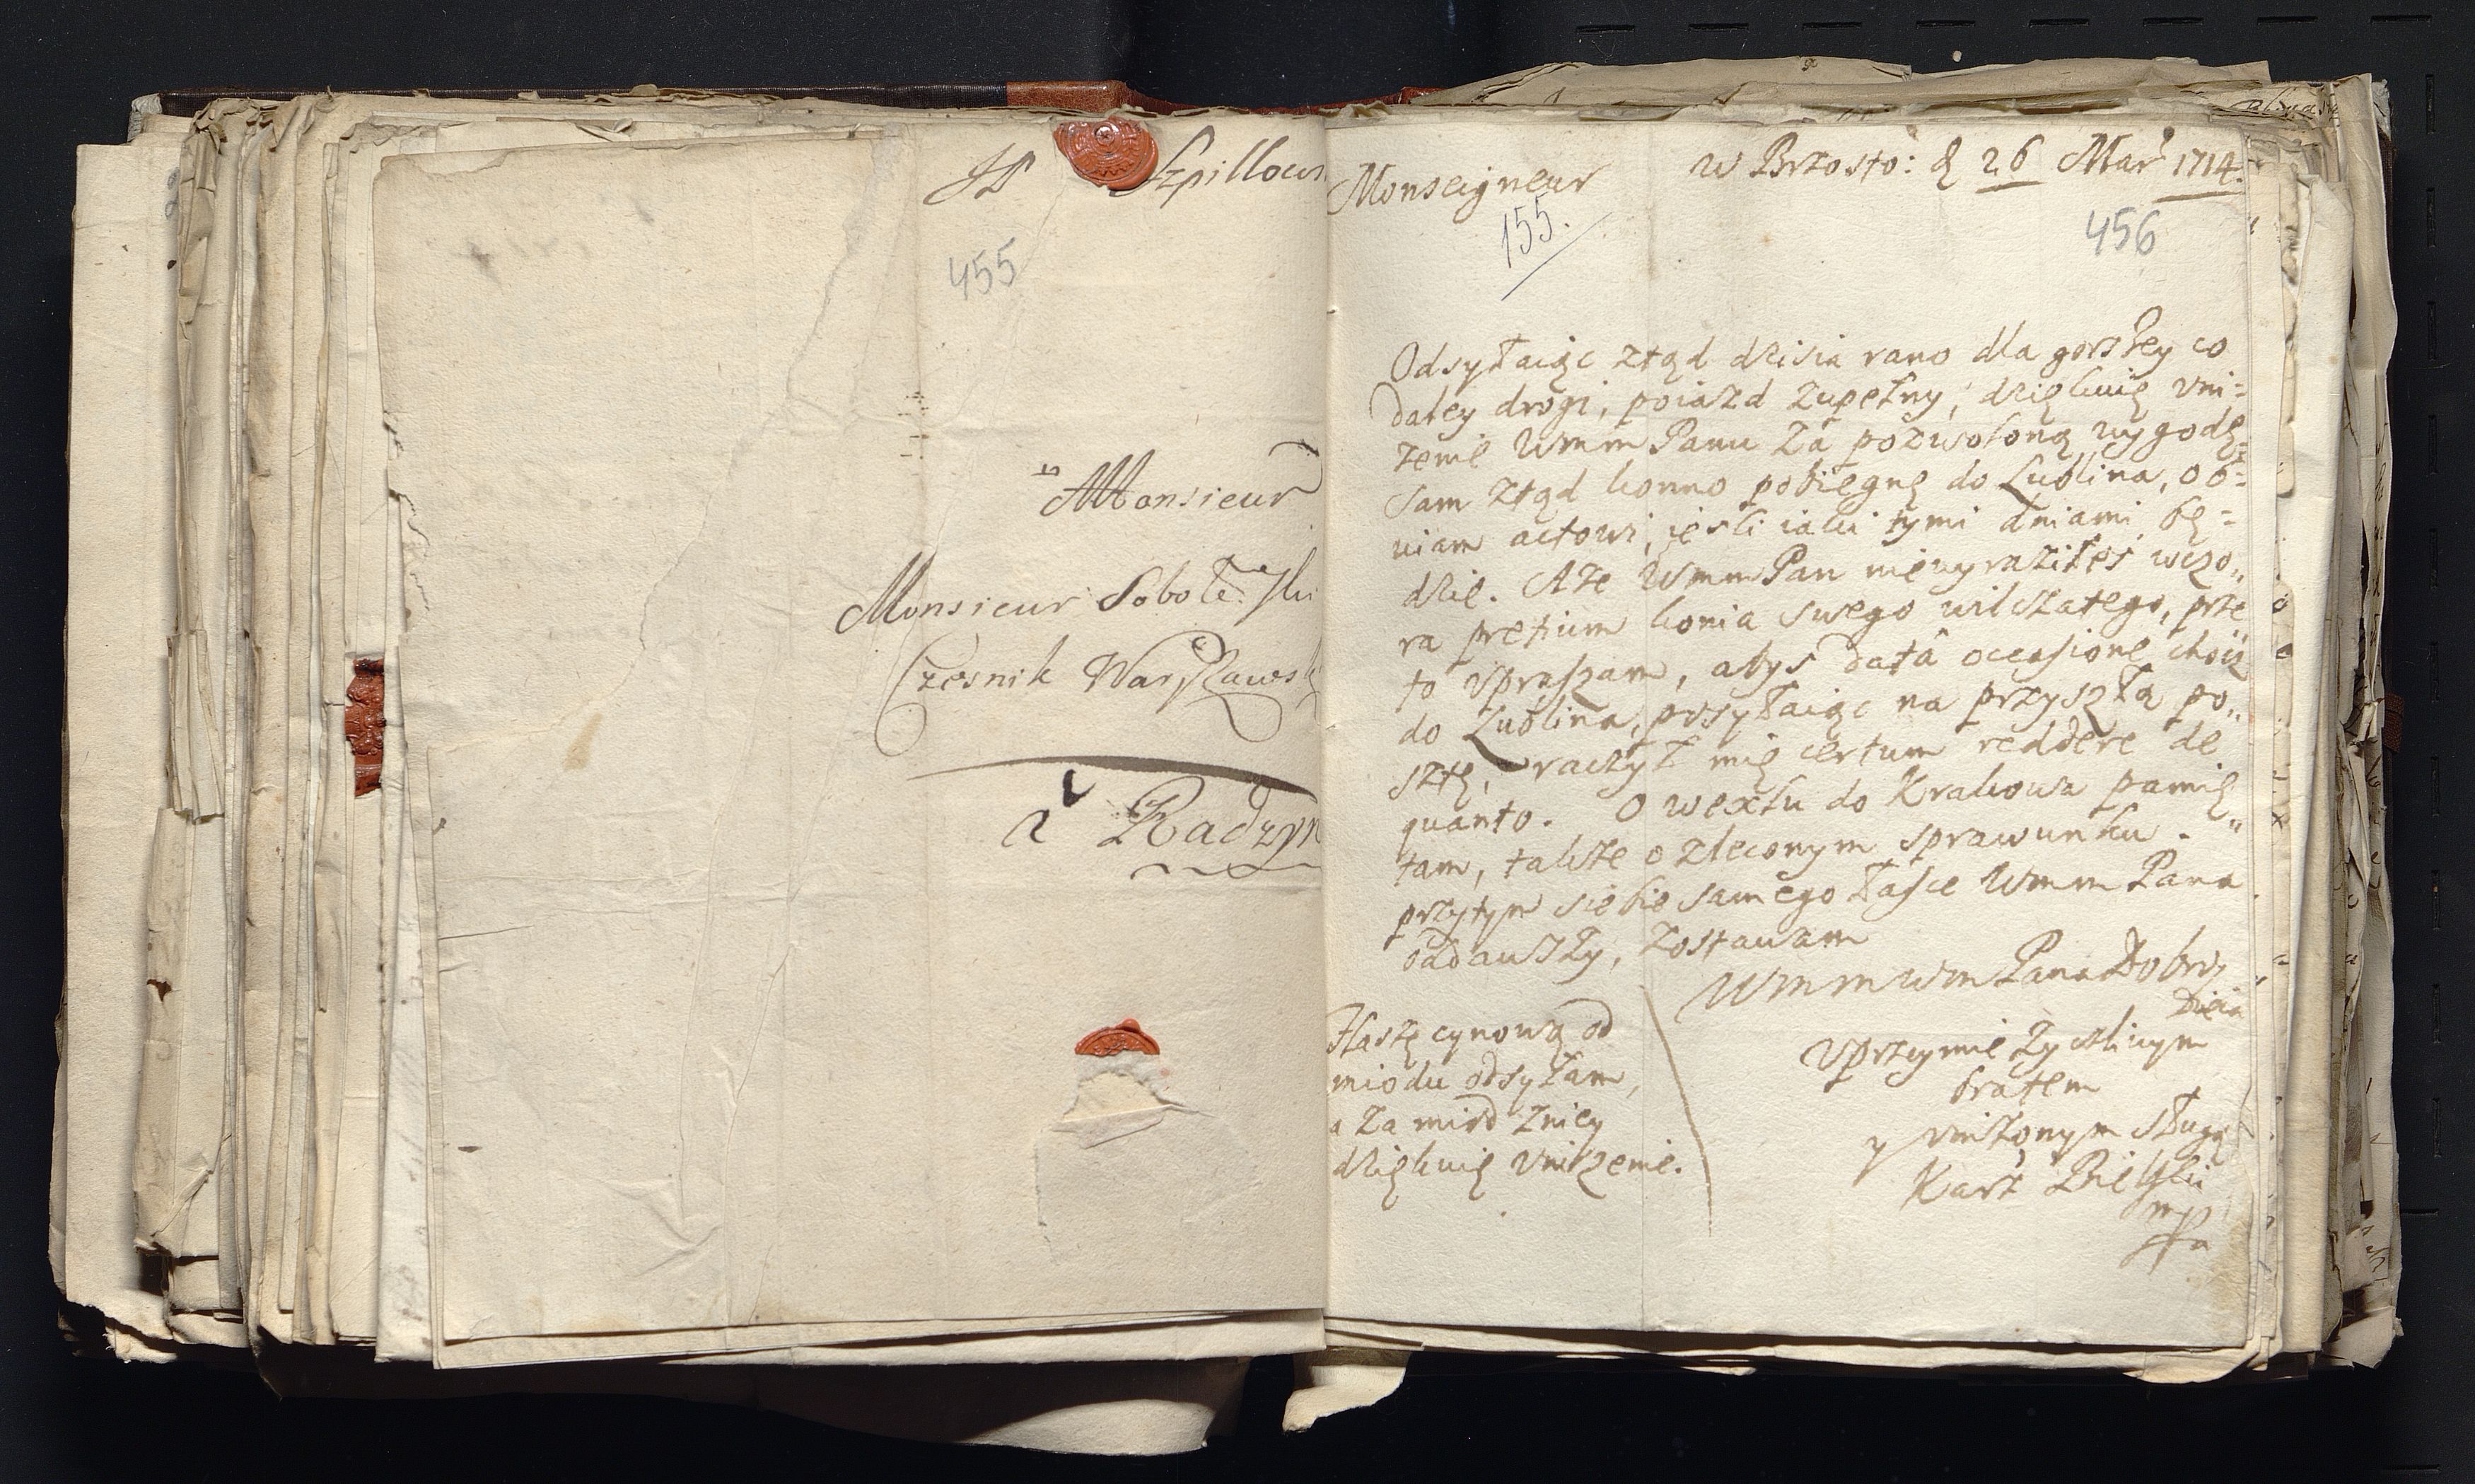 JP Szpillows
455
A Monsieur
Monsieur Sobolewski
Czesnik Warszawsk
à Radzyn
w Brzosto: d 26 Mar 1714.
Monseigneur
155.
456
Odsyłaiąc ztąd dzisia rano dla gorszey co
daley drogi, poiazd zupełny, dziękuię vni=
zenie Wmm Panu za pozwoloną wygodę=
Sam ztąd konno pobiegnę do Lublina, ob=
viam actowi, iesli iaki tymi dniami bę=
dzie. Aże Wmm Pan niewyraziłes wczo„
ra pretium konia swego wilczatego, prze
to vpraszam, abys data occasione choiź
do Lublina, posyłaiąc na przyszłą po„
sztę, raczył mię certum reddere de
quanto. O wexlu do Krakowa pamię„
tam, także o zleconym sprawunku.
przytym siebie samego łasce Wmm Pana
oddawszy, zostawam
WmmwmPana Dobro„
dzieia
vprzeymie życzliwym
bratem
y vniżonym sługą
Karż Bielski
mpa
Flaszę cynową od
miodu odsyłam,
a za miod zniey
dziękuię vniżenie.